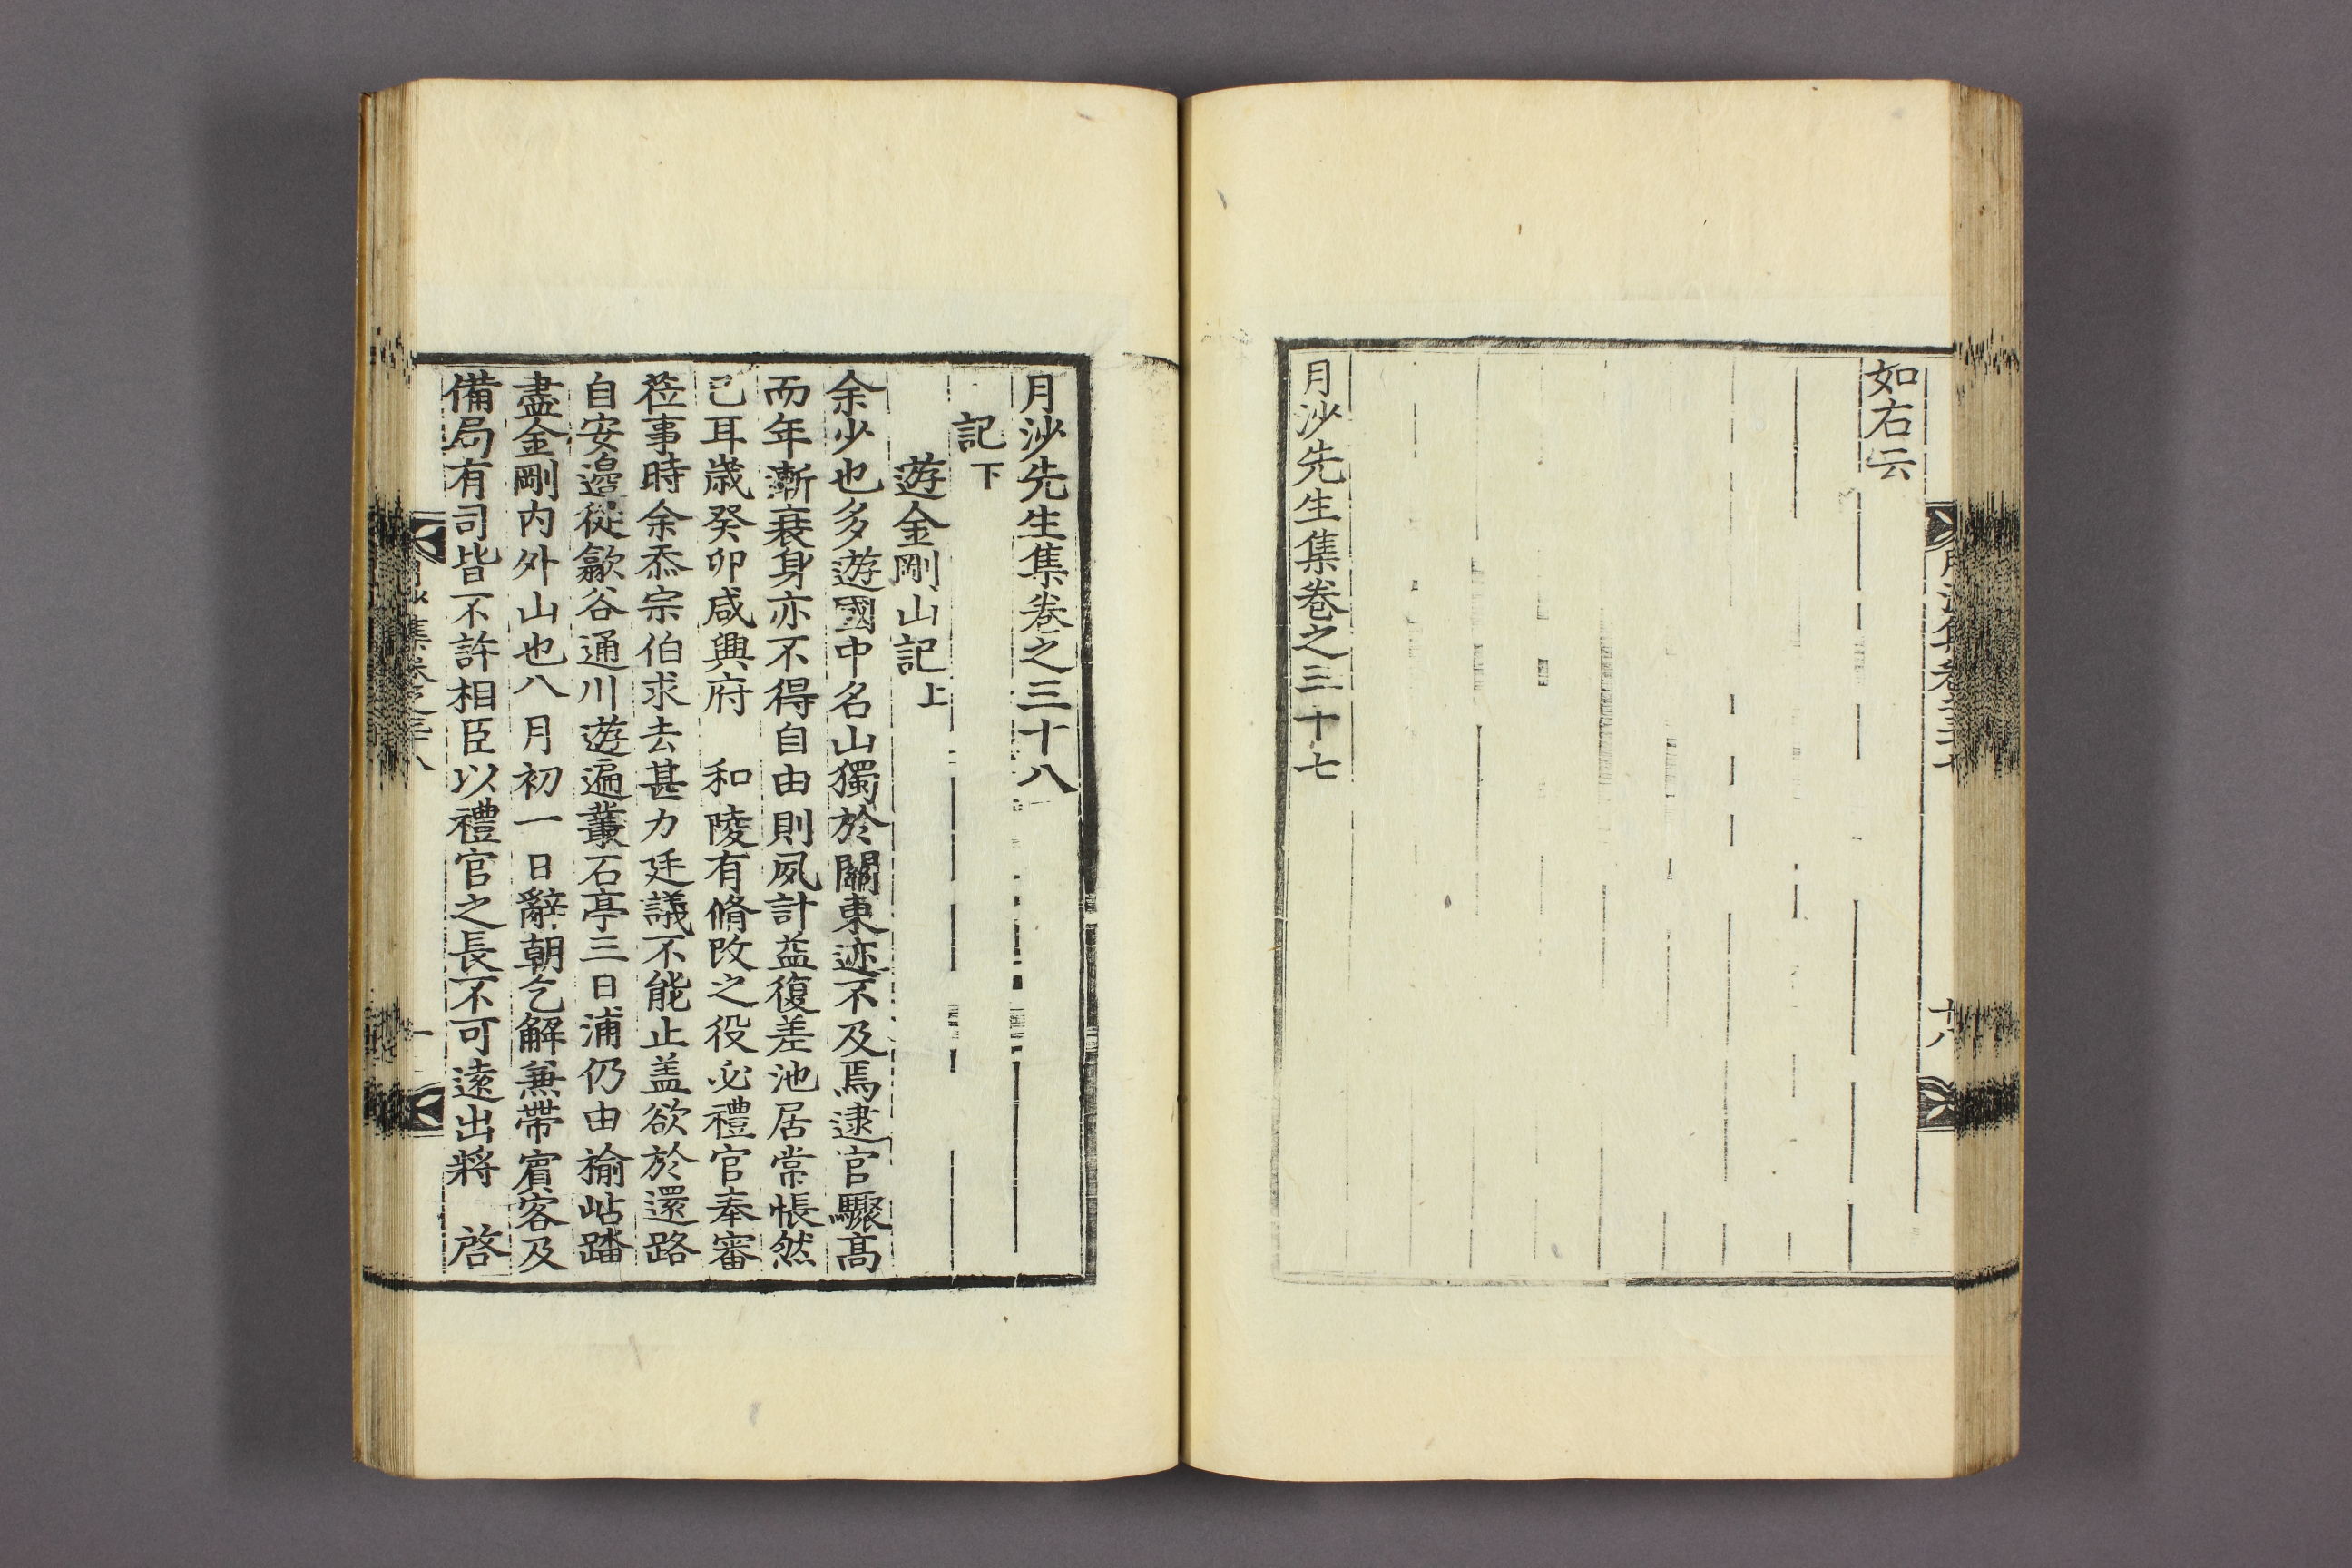 如右云
月沙先生集卷之三十七
十八
月沙先生集卷之三十八
記下
遊金剛山記上
余少也多遊國中名山獨於關東迹不及焉逮官驟高
而年漸衰身亦不得自由則夙計益復差池居常悵然
已耳歲癸卯咸興府　和陵有脩改之役必禮官奉審
莅事時余忝宗伯求去甚力廷議不能止盖欲於還路
自安邊從歙谷通川遊遍叢石亭三日浦仍由楡岾踏
盡金剛内外山也八月初一日辭朝乞解兼帶賓客及
備局有司皆不許相臣以禮官之長不可遠出將　啓